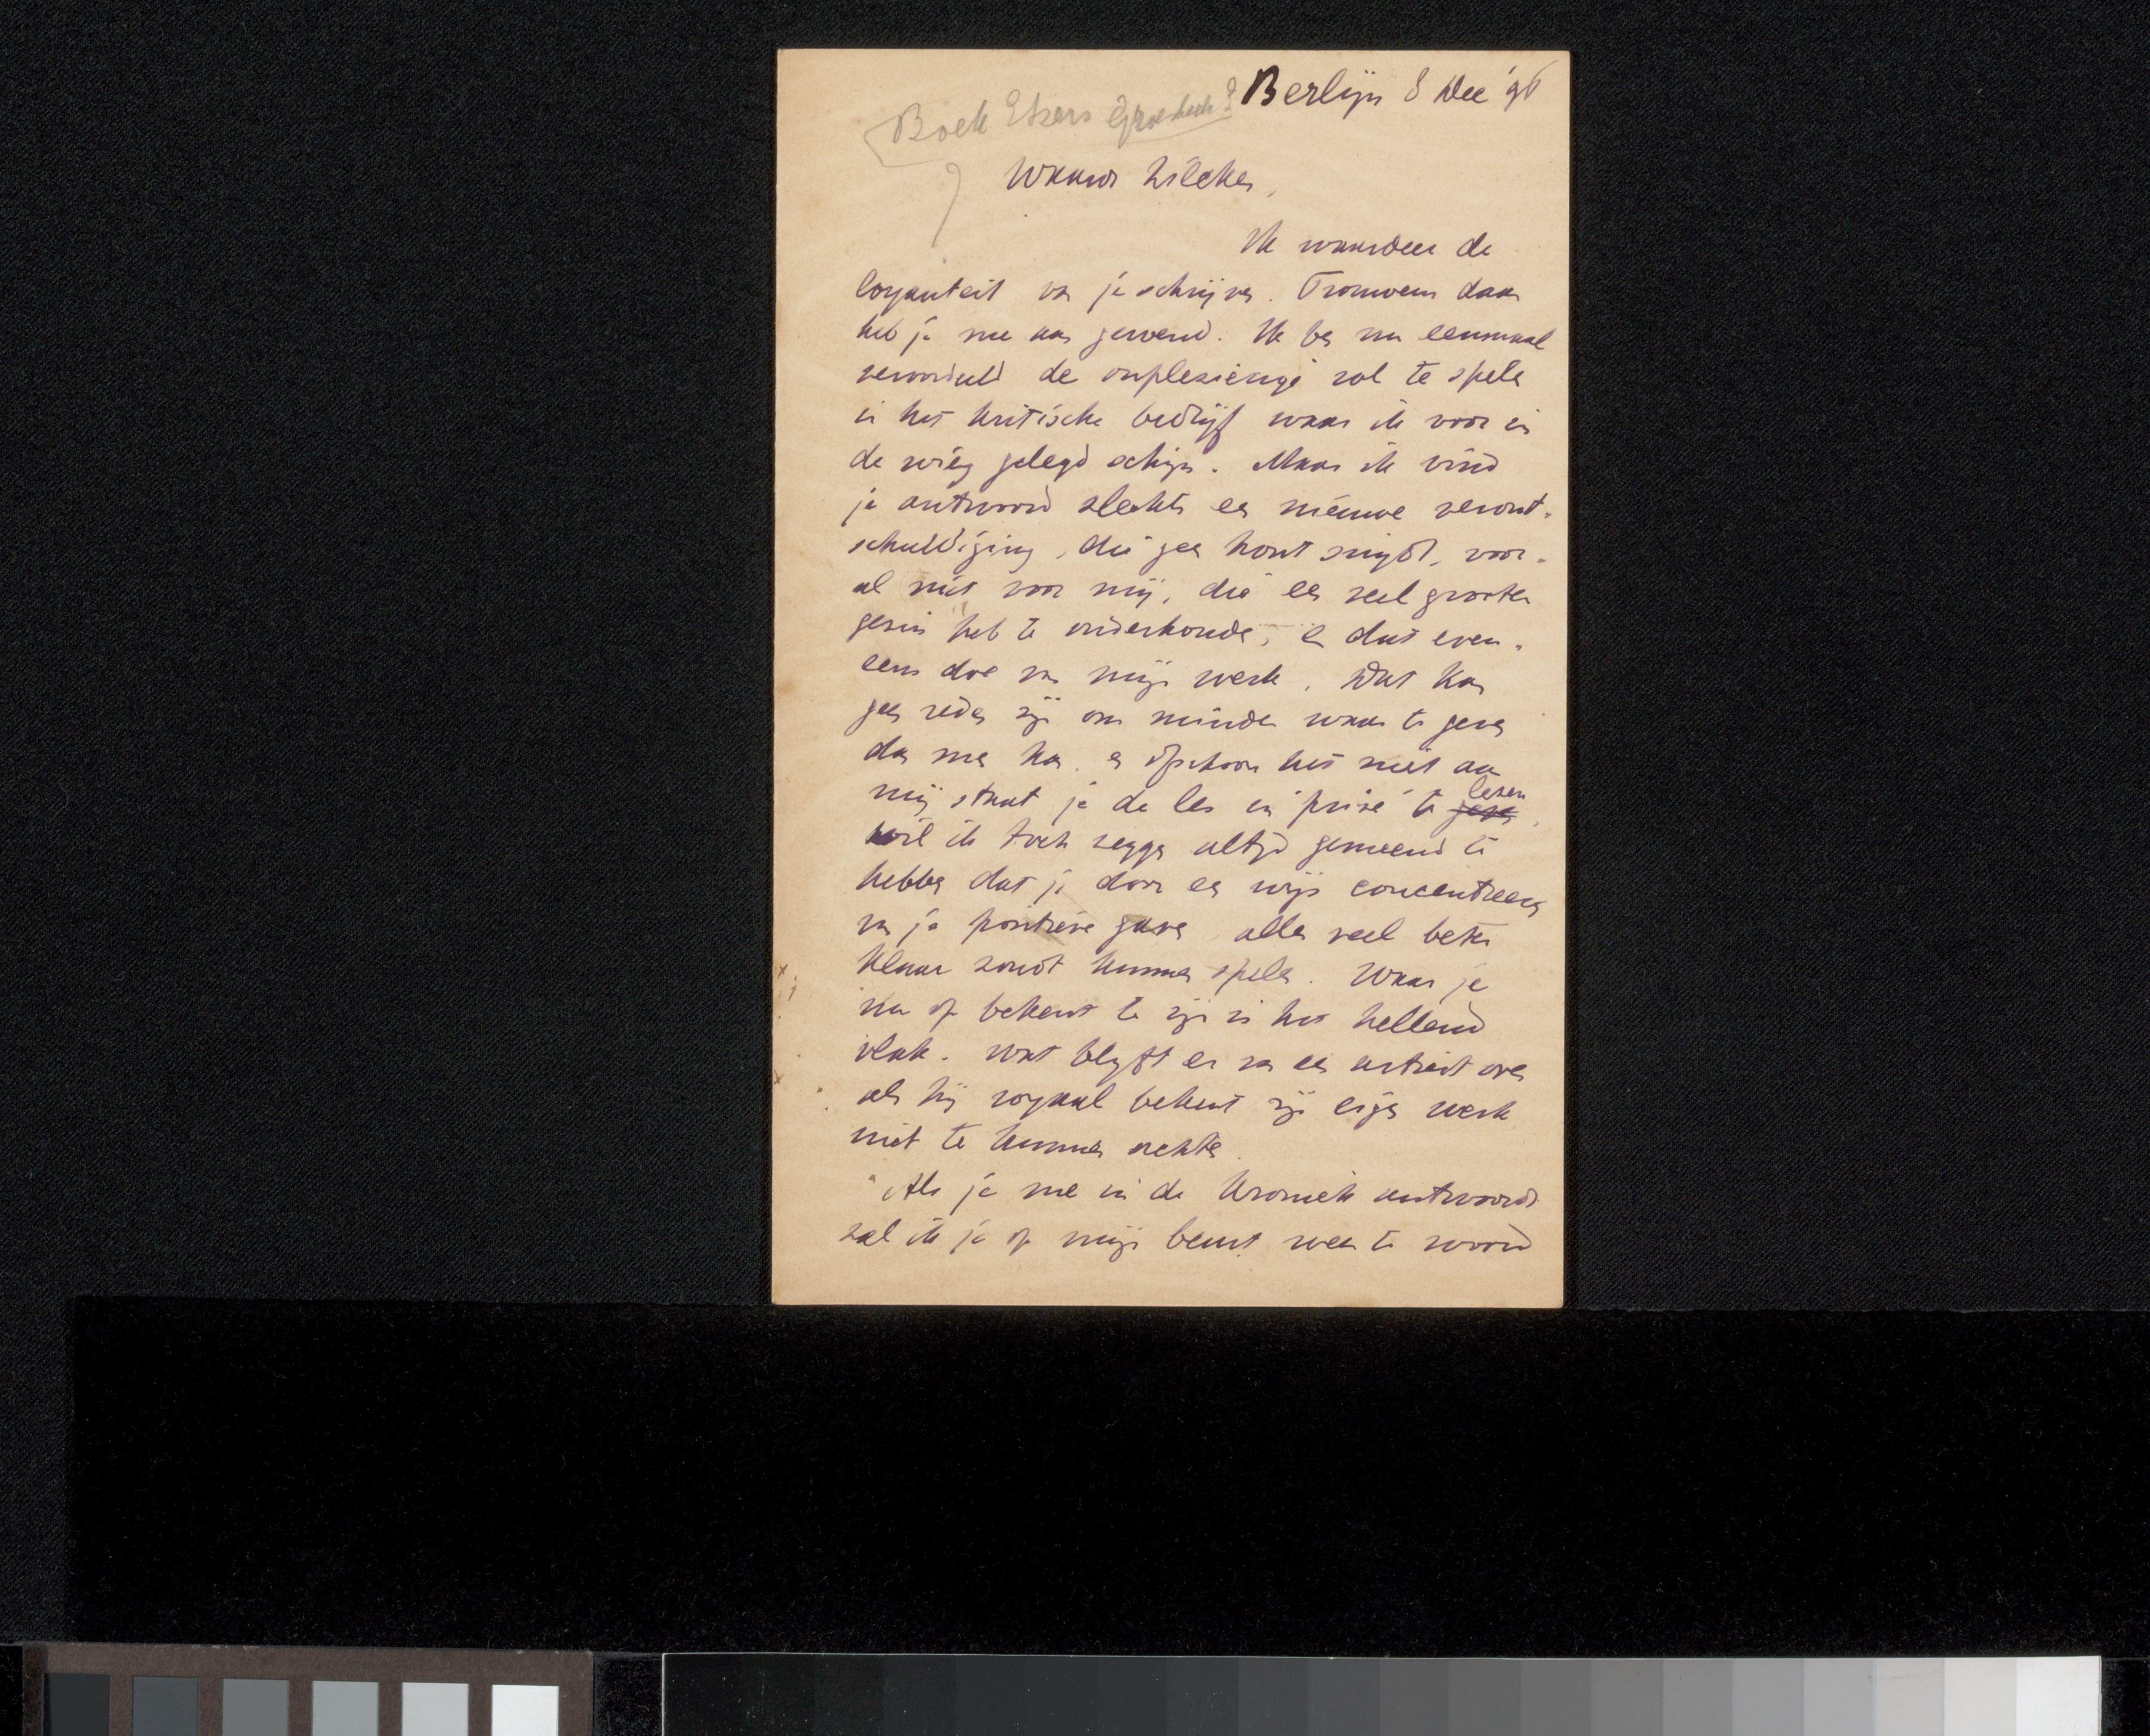 Boek Etsers
Berlijn 8 Dec '96
Waarde Zilcken,
Ik waardeer de
loyauteit van je schrijven. Trouwens daar
heb je me aan gewend. Ik ben nu eenmaal
veroordeeld de onplezierige rol te spelen
in het kritische bedrijf waar ik voor in
de wieg gelegd schijn. Maar ik vind
je antwoord slechts een nieuwe veront-
schuldiging, die geen hout snijdt, voor-
al niet voor mij, die een veel grooter
gezin heb te onderhouden, en dat even-
eens doe van mijn werk. Dat kan
geen reden zijn om minder waar te geven
dan men kan, en ofschoon het niet aan
mij staat je de les en privé te lezen
wil ik toch zeggen altijd gemeend te
hebben dat je door een wijs concentreeren
van je positieve gaven alles veel beter
klaar zoudt kunnen spelen. Waar je
nu op bekent te zijn is het hellend
vlak. Wat blijft er van een artiest over
als hij royaal bekent zijn eigen werk
niet te kunnen achten.
Als je me in de Kroniek antwoordt
zal ik je op mijn beurt weer te woord